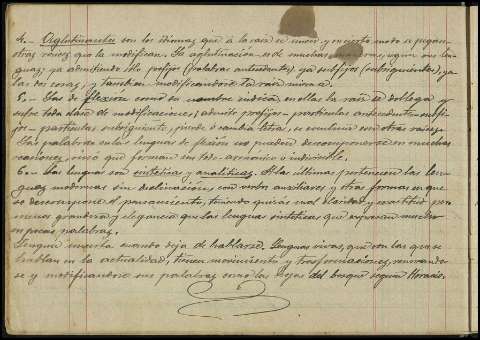 4.- Aglutinantes son los idiomas que á la raíz se unen, y en cierto modo se pegan
otras raíces que la modifican. La aglutinación es de muchas maneras, según sus len-
guas; ya admitiendo sólo prefijos (palabras antecedentes) ya subfijos (subsiguientes), ya
las dos cosas, y también modificándose la raíz misma.
5.- Las de flexión como su nombre indica, en ellas la raíz se doblega y
sufre toda clase de modificaciones; admite prefijos-partículas antecedentes-subfi-
jos-partículas subsiguientes, pierde ó cambia letras, se continúa con otras raíces.
Las palabras en las lenguas de flexión no pueden descomponerse en muchas
ocasiones, sino que forman un todo armónico é indivisible.
6.- Las lenguas son sintéticas y analíticas. A las últimas pertenecen las len-
guas modernas sin declinación, con verbos auxiliares y otras formas en que
se descompone el pensamiento, teniendo quizás más claridad y exactitud pero
menos grandeza y elegancia que las lenguas sintéticas que expresan mucho
en pocas palabras.
Lengua muerta cuando deja de hablarse. Lenguas vivas, que son las que se
hablan en la actualidad, tienen movimiento y trasformaciones, renovando-
se y modificandose sus palabras como las hojas del bosque según Horacio.